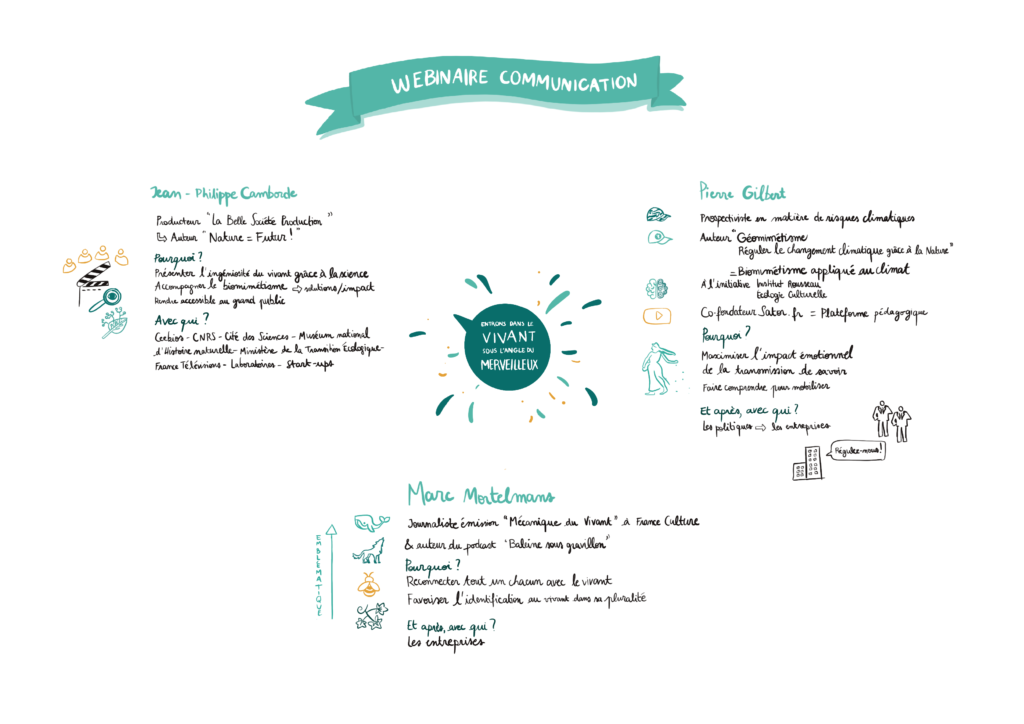 WEBINAIRE COMMUNICATION
Jean - Philippe Camborde
Producteur "La Belle Société Production"
↳ Auteur "Nature = Futur!"
Pourquoi ?
Présenter l'ingéniosité du vivant grâce à la science
Accompagner le biomimétisme ⇨ solutions/impact
Rendre accessible au grand public
Avec qui ?
Ceebios - CNRS - Cité des Sciences - Muséum national
d'Histoire naturelle - Ministère de la Transition Écologique -
France Télévisions - Laboratoires - Start-ups
ENTRONS DANS LE
VIVANT
SOUS L'ANGLE DU
MERVEILLEUX
Pierre Gilbert
Prospectiviste en matière de risques climatiques
Auteur "Géomimétisme
Réguler le changement climatique grâce à la Nature"
= Biomimétisme appliqué au climat
A l'initiative Institut Rousseau
Ecologie Culturelle
Co-fondateur Sator.fr = Plateforme pédagogique
Pourquoi ?
Maximiser l'impact émotionnel
de la transmission de savoir
Faire comprendre puis mobiliser
Et après, avec qui ?
Les politiques ⇨ les entreprises
Régulez-nous!
Marc Mortelmans
Journaliste émission "Mécanique du Vivant" à France Culture
& auteur du podcast "Baleine sous gravillon"
Pourquoi ?
Reconnecter tout un chacun avec le vivant
Favoriser l'identification au vivant dans sa pluralité
Et après, avec qui ?
Les entreprises
EMBLÉMATIQUE